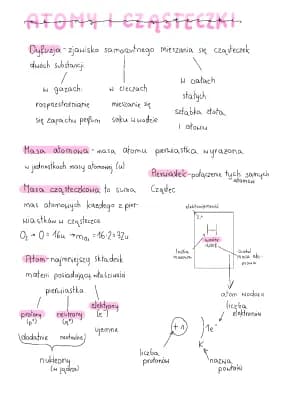 ATOMY I CZĄSTECZKI
Dyfuzja - zjawisko samorzutnego mieszania się cząsteczek
dwóch substancji.
w gazach:
rozprzestrzenianie
się zapachu perfum
w cieczach
mieszanie się
soku w wodzie
w ciałach
stałych
sztabka złota
i ołowiu
Masa atomowa - masa atomu pierwiastka wyrażona
w jednostkach masy atomowej (u)
Pierwiastek - połączenie tych samych
atomów
Masa cząsteczkowa to suma
mas atomowych każdego z pier-
wiastków w cząsteczce
O₂ → O = 16u → mO₂ = 16·2 = 32u
Cząstec
Atom - najmniejszy składnik
materii posiadający właściwości
pierwiastka
protony
(p⁺)
neutrony
(n°)
elektrony
(e⁻)
ujemne
(dodatnie
neutralne)
nukleony
(w jądrze)
elektroujemność
liczba
masowa
atom wodoru
liczba
elektronów
+1
1e⁻
K
liczba
protonów
nazwa
powłoki